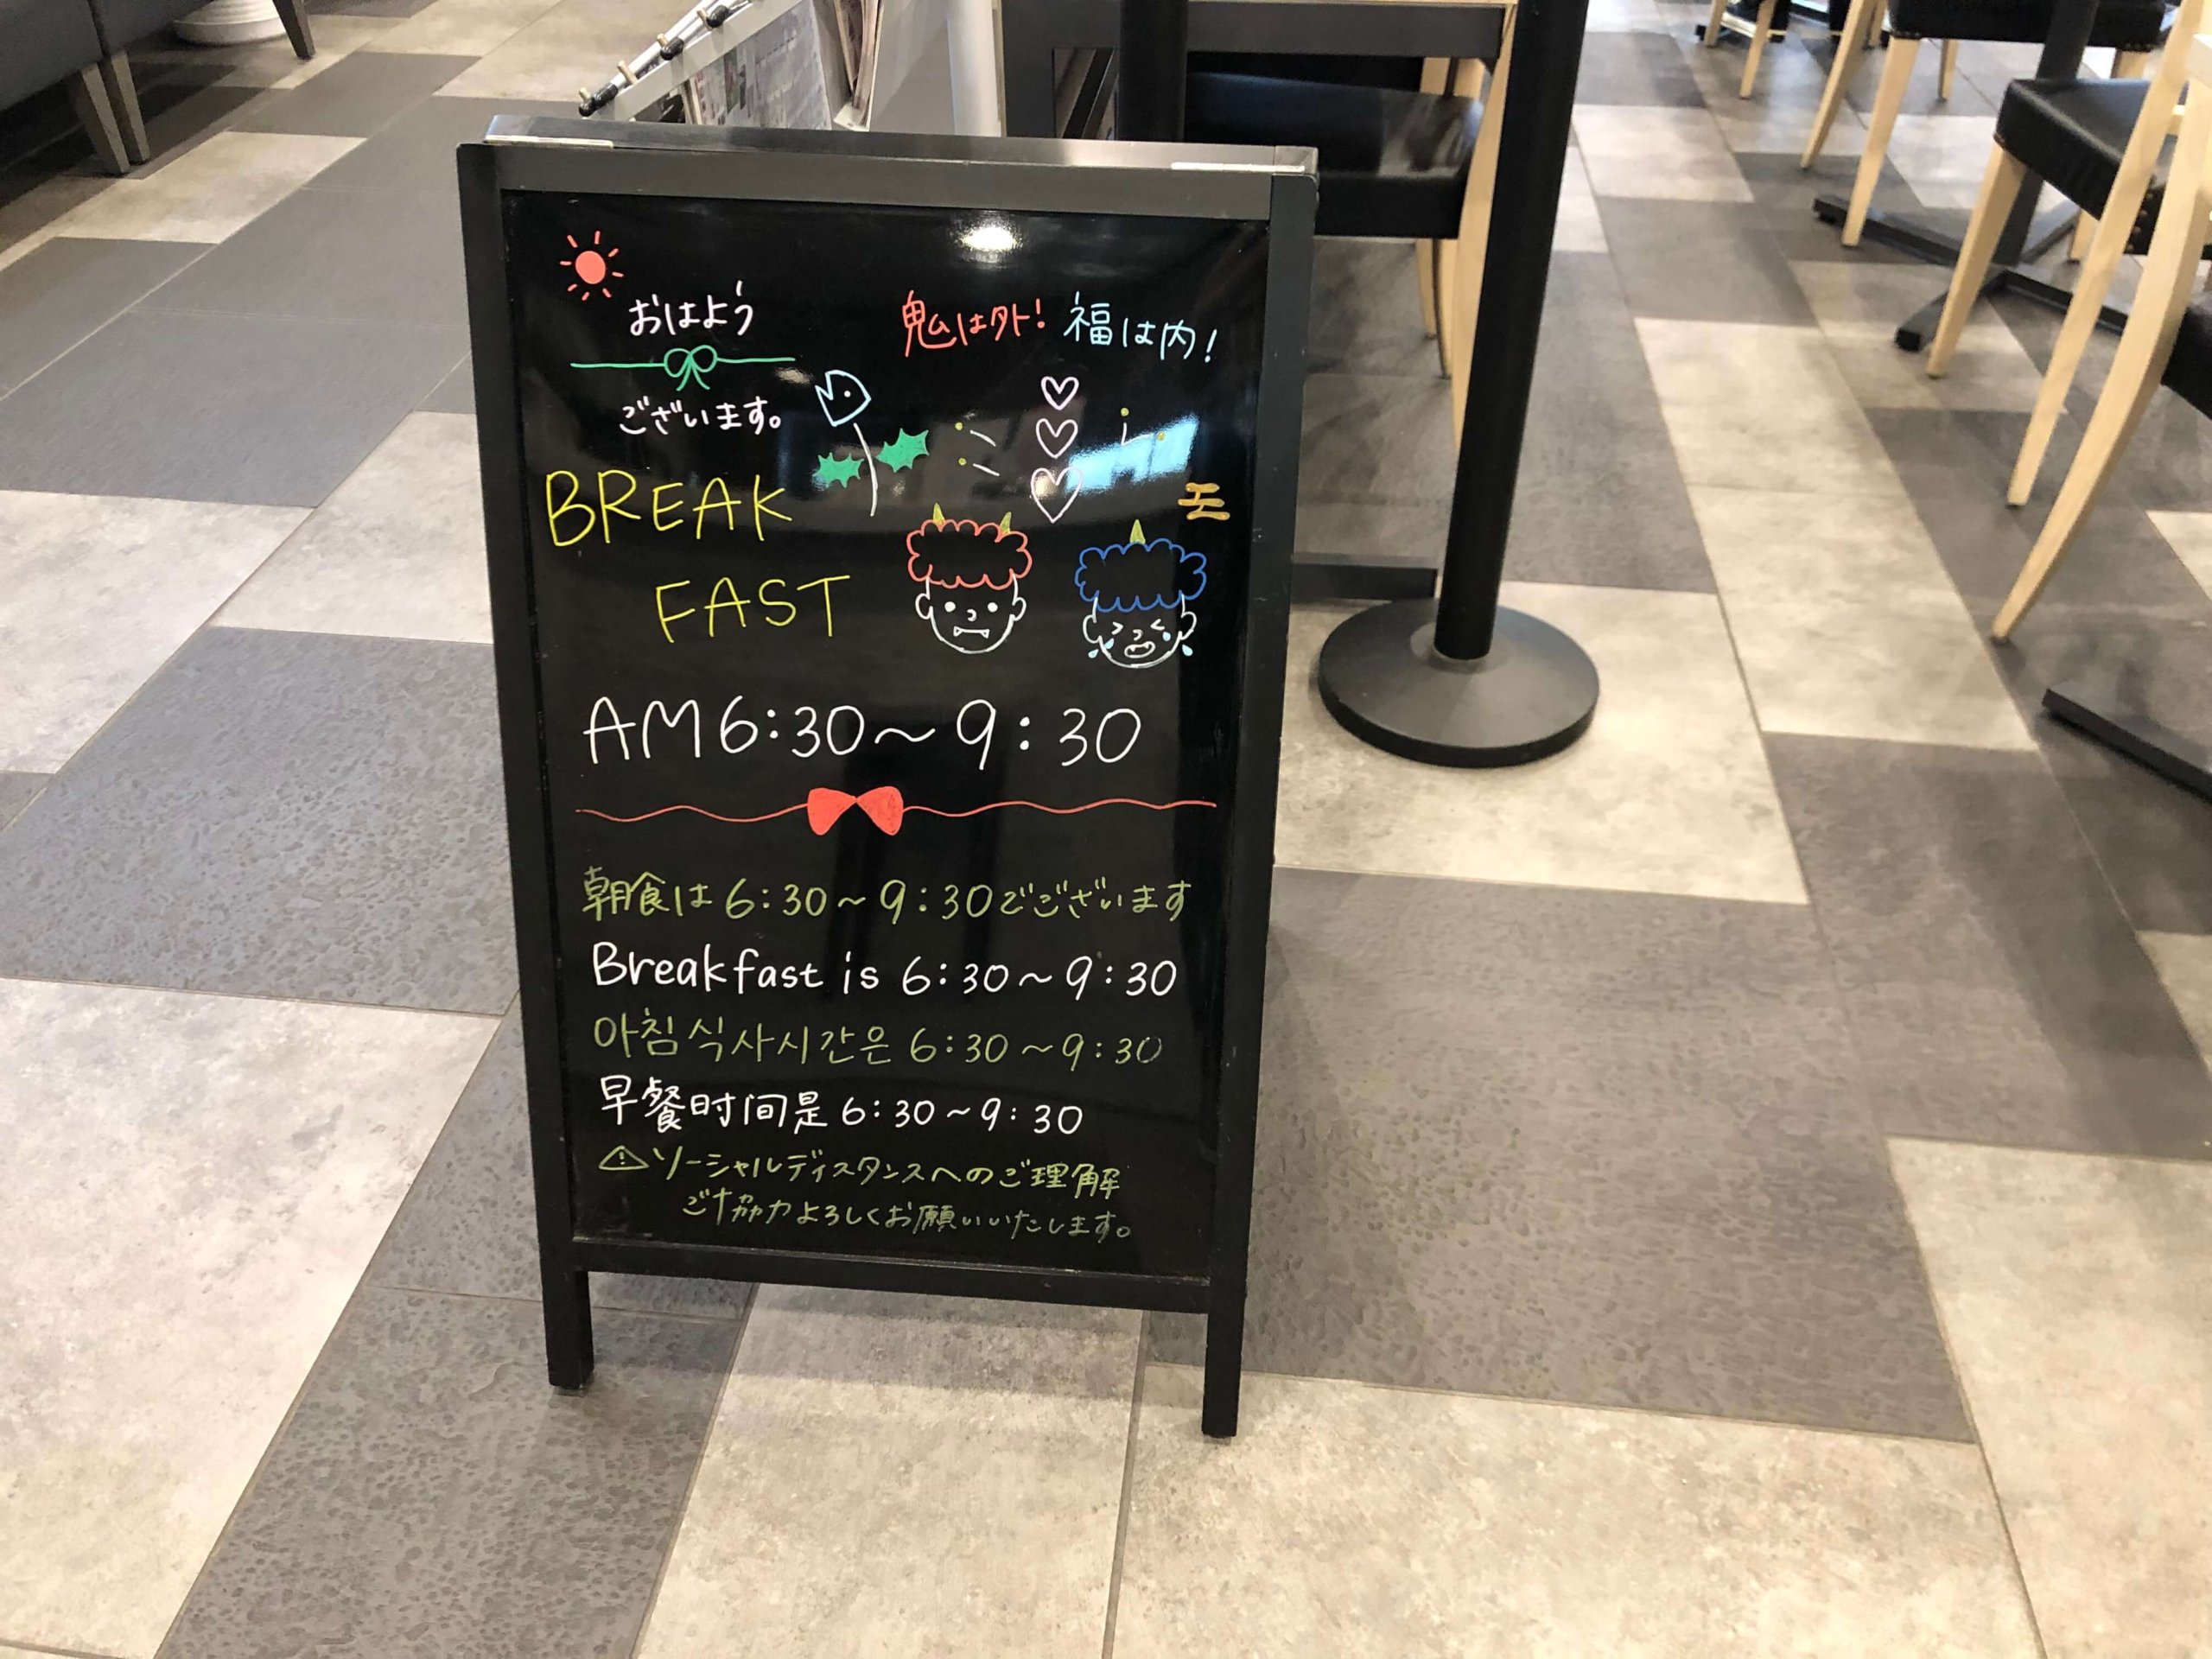 おはよう
ございます。
鬼は外! 福は内!
BREAK
FAST
AM6:30~9:30
朝食は6:30~9:30でございます
Breakfast is 6:30~9:30
아침식사시간은 6:30~9:30
早餐时间是6:30~9:30
⚠ソーシャルディスタンスへのご理解
ご協力よろしくお願いいたします。